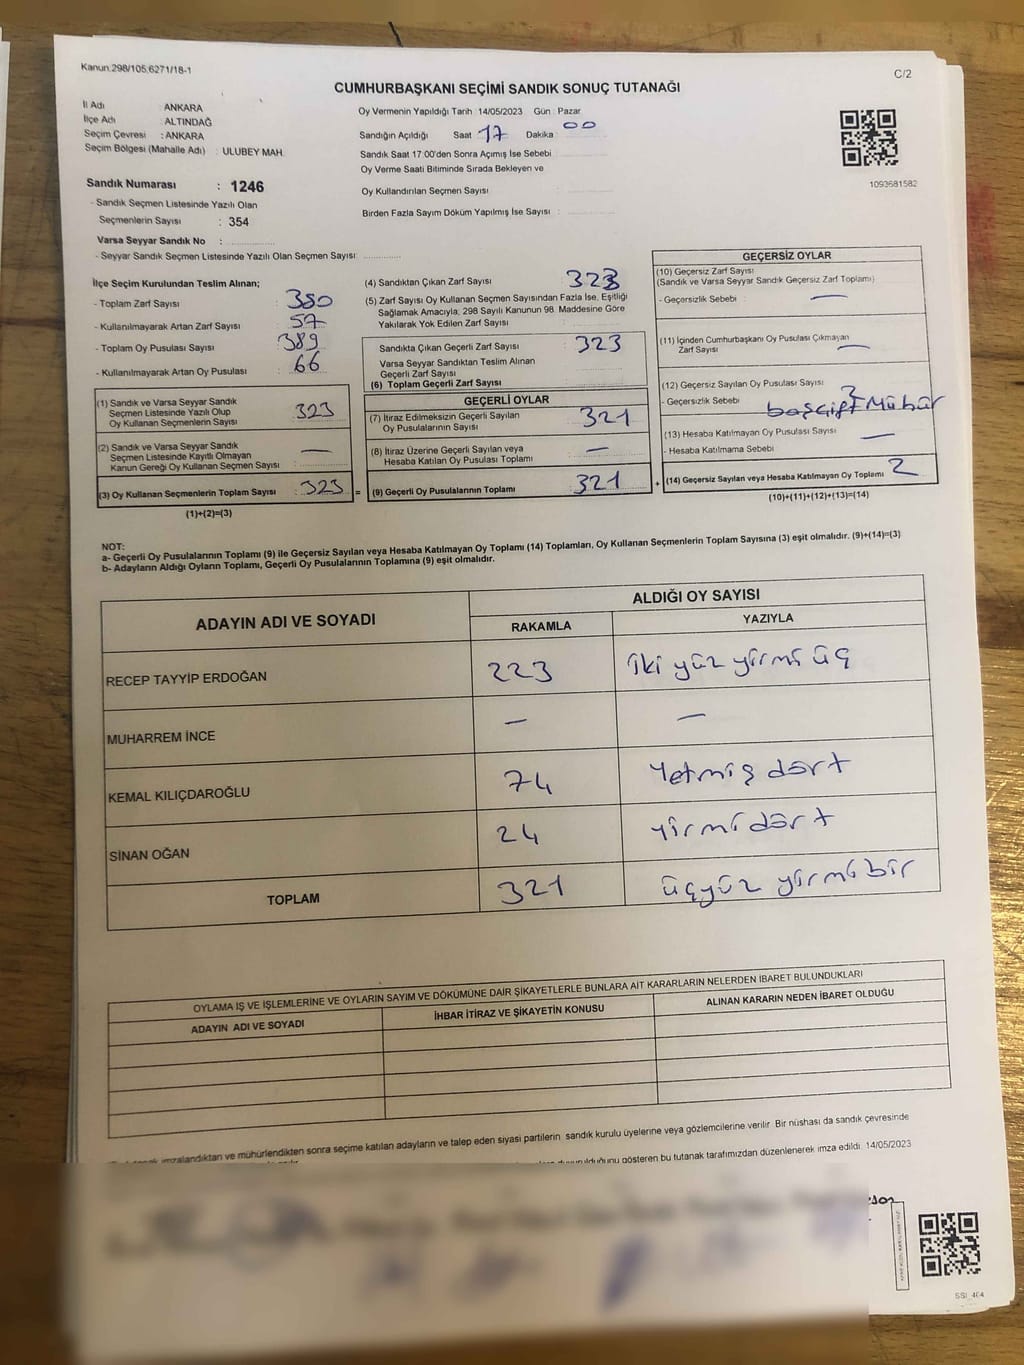 Kanun:298/105;6271/18-1
C/2
CUMHURBAŞKANI SEÇİMİ SANDIK SONUÇ TUTANAĞI
İl Adı : ANKARA
İlçe Adı : ALTINDAĞ
Seçim Çevresi : ANKARA
Seçim Bölgesi (Mahalle Adı) : ULUBEY MAH.
Oy Vermenin Yapıldığı Tarih : 14/05/2023 Gün : Pazar
Sandığın Açıldığı Saat 17 Dakika 00
Sandık Saat 17:00'den Sonra Açımış İse Sebebi
Oy Verme Saati Bitiminde Sırada Bekleyen ve
Oy Kullandırılan Seçmen Sayısı :
Birden Fazla Sayım Döküm Yapılmış İse Sayısı :
1093681582
Sandık Numarası : 1246
- Sandık Seçmen Listesinde Yazılı Olan
Seçmenlerin Sayısı : 354
Varsa Seyyar Sandık No :
- Seyyar Sandık Seçmen Listesinde Yazılı Olan Seçmen Sayısı:
İlçe Seçim Kurulundan Teslim Alınan;
- Toplam Zarf Sayısı : 380
- Kullanılmayarak Artan Zarf Sayısı : 57
- Toplam Oy Pusulası Sayısı : 389
- Kullanılmayarak Artan Oy Pusulası : 66
(1) Sandık ve Varsa Seyyar Sandık
Seçmen Listesinde Yazılı Olup
Oy Kullanan Seçmenlerin Sayısı : 323
(2) Sandık ve Varsa Seyyar Sandık
Seçmen Listesinde Kayıtlı Olmayan
Kanun Gereği Oy Kullanan Seçmen Sayısı : —
(3) Oy Kullanan Seçmenlerin Toplam Sayısı : 323 =
(1)+(2)=(3)
(4) Sandıktan Çıkan Zarf Sayısı : 323
(5) Zarf Sayısı Oy Kullanan Seçmen Sayısından Fazla İse, Eşitliği
Sağlamak Amacıyla; 298 Sayılı Kanunun 98. Maddesine Göre
Yakılarak Yok Edilen Zarf Sayısı :
Sandıkta Çıkan Geçerli Zarf Sayısı : 323
Varsa Seyyar Sandıktan Teslim Alınan
Geçerli Zarf Sayısı :
(6) Toplam Geçerli Zarf Sayısı :
GEÇERLİ OYLAR
(7) İtiraz Edilmeksizin Geçerli Sayılan
Oy Pusulalarının Sayısı : 321
(8) İtiraz Üzerine Geçerli Sayılan veya
Hesaba Katılan Oy Pusulası Toplamı : —
(9) Geçerli Oy Pusulalarının Toplamı : 321 +
GEÇERSİZ OYLAR
(10) Geçersiz Zarf Sayısı
(Sandık ve Varsa Seyyar Sandık Geçersiz Zarf Toplamı)
- Geçersizlik Sebebi : —
(11) İçinden Cumhurbaşkanı Oy Pusulası Çıkmayan
Zarf Sayısı —
(12) Geçersiz Sayılan Oy Pusulası Sayısı : 2
- Geçersizlik Sebebi : boş çift Mühür
(13) Hesaba Katılmayan Oy Pusulası Sayısı : —
- Hesaba Katılmama Sebebi
(14) Geçersiz Sayılan veya Hesaba Katılmayan Oy Toplamı : 2
(10)+(11)+(12)+(13)=(14)
NOT:
a- Geçerli Oy Pusulalarının Toplamı (9) ile Geçersiz Sayılan veya Hesaba Katılmayan Oy Toplamı (14) Toplamları, Oy Kullanan Seçmenlerin Toplam Sayısına (3) eşit olmalıdır. (9)+(14)=(3)
b- Adayların Aldığı Oyların Toplamı, Geçerli Oy Pusulalarının Toplamına (9) eşit olmalıdır.
ADAYIN ADI VE SOYADI
ALDIĞI OY SAYISI
RAKAMLA YAZIYLA
RECEP TAYYİP ERDOĞAN 223 iki yüz yirmi üç
MUHARREM İNCE — —
KEMAL KILIÇDAROĞLU 74 Yetmiş dört
SİNAN OĞAN 24 yirmi dört
TOPLAM 321 üçyüz yirmi bir
OYLAMA İŞ VE İŞLEMLERİNE VE OYLARIN SAYIM VE DÖKÜMÜNE DAİR ŞİKAYETLERLE BUNLARA AİT KARARLARIN NELERDEN İBARET BULUNDUKLARI
ADAYIN ADI VE SOYADI İHBAR İTİRAZ VE ŞİKAYETİN KONUSU ALINAN KARARIN NEDEN İBARET OLDUĞU
imzalandıktan ve mühürlendikten sonra seçime katılan adayların ve talep eden siyasi partilerin sandık kurulu üyelerine veya gözlemcilerine verilir. Bir nüshası da sandık çevresinde
gösteren bu tutanak tarafımızdan düzenlenerek imza edildi. 14/05/2023